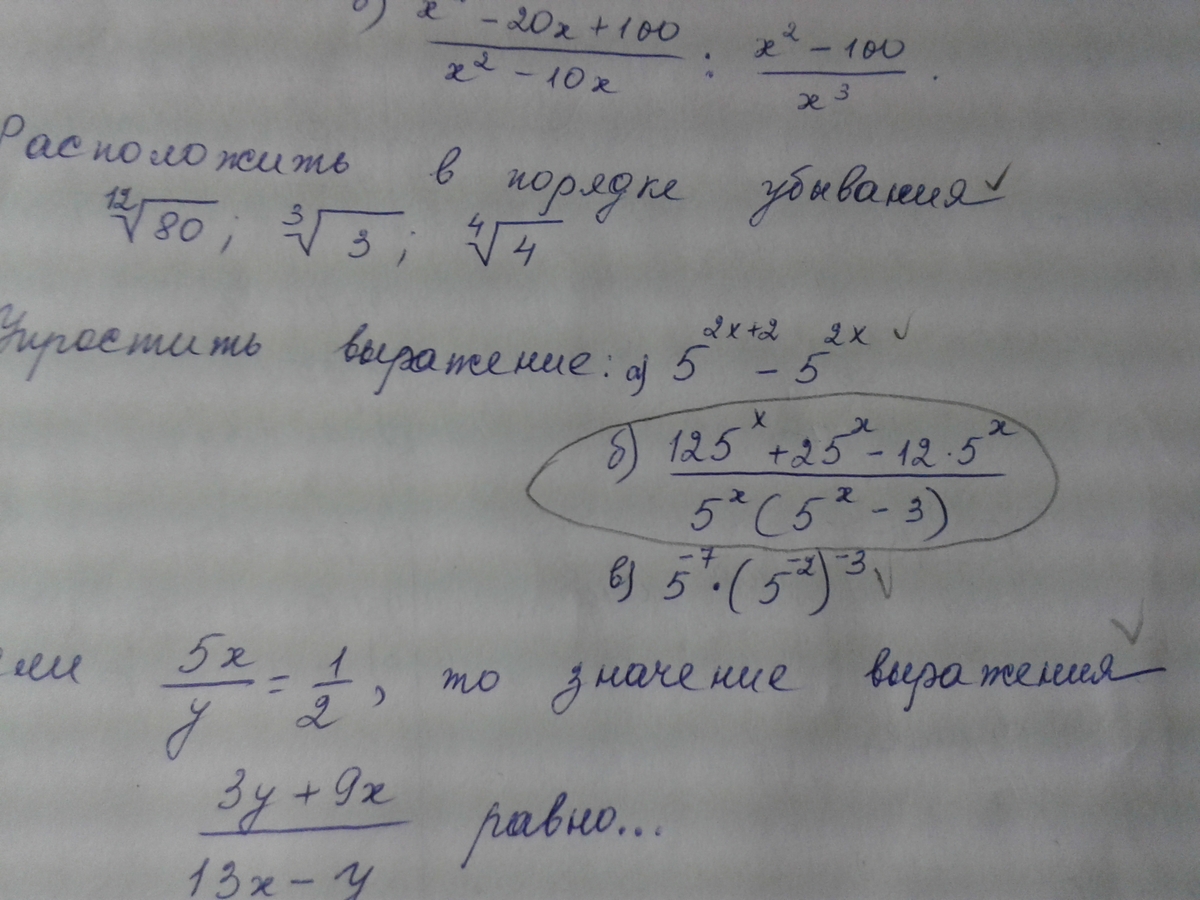 б) (x² − 20x + 100)/(x² − 10x) : (x² − 100)/x³.
Расположить в порядке убывания ✓
¹²√80; ³√3; ⁴√4
Упростить выражение: а) 5^(2x+2) − 5^(2x) ✓
б) (125^x + 25^x − 12·5^x)/(5^x(5^x − 3))
в) 5^(−7)·(5^(−2))^(−3) ✓
ли 5x/y = 1/2, то значение выражения ✓
(3y + 9x)/(13x − y) равно...